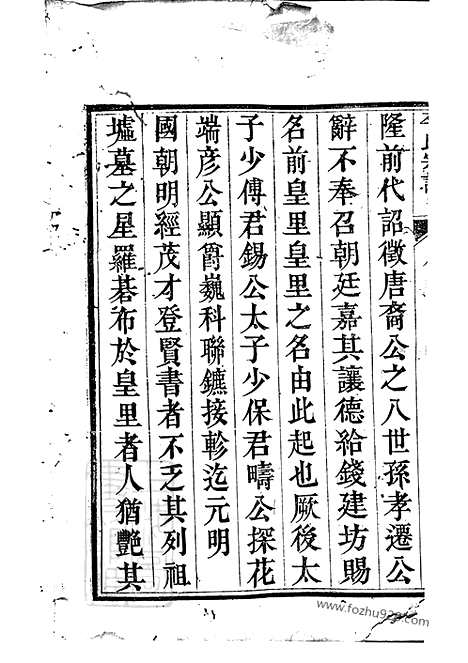 隆前代詔徵唐裔公之八世孫孝遷公
辭不奉召朝廷嘉其讓德給錢建坊賜
名前皇里皇里之名由此起也厥後太
子少傅君錫公太子少保君疇公探花
端彥公顯爵巍科聯鑣接軫迄元明
國朝明經茂才登賢書者不乏其列祖
墟墓之星羅碁布於皇里者人猶艷其